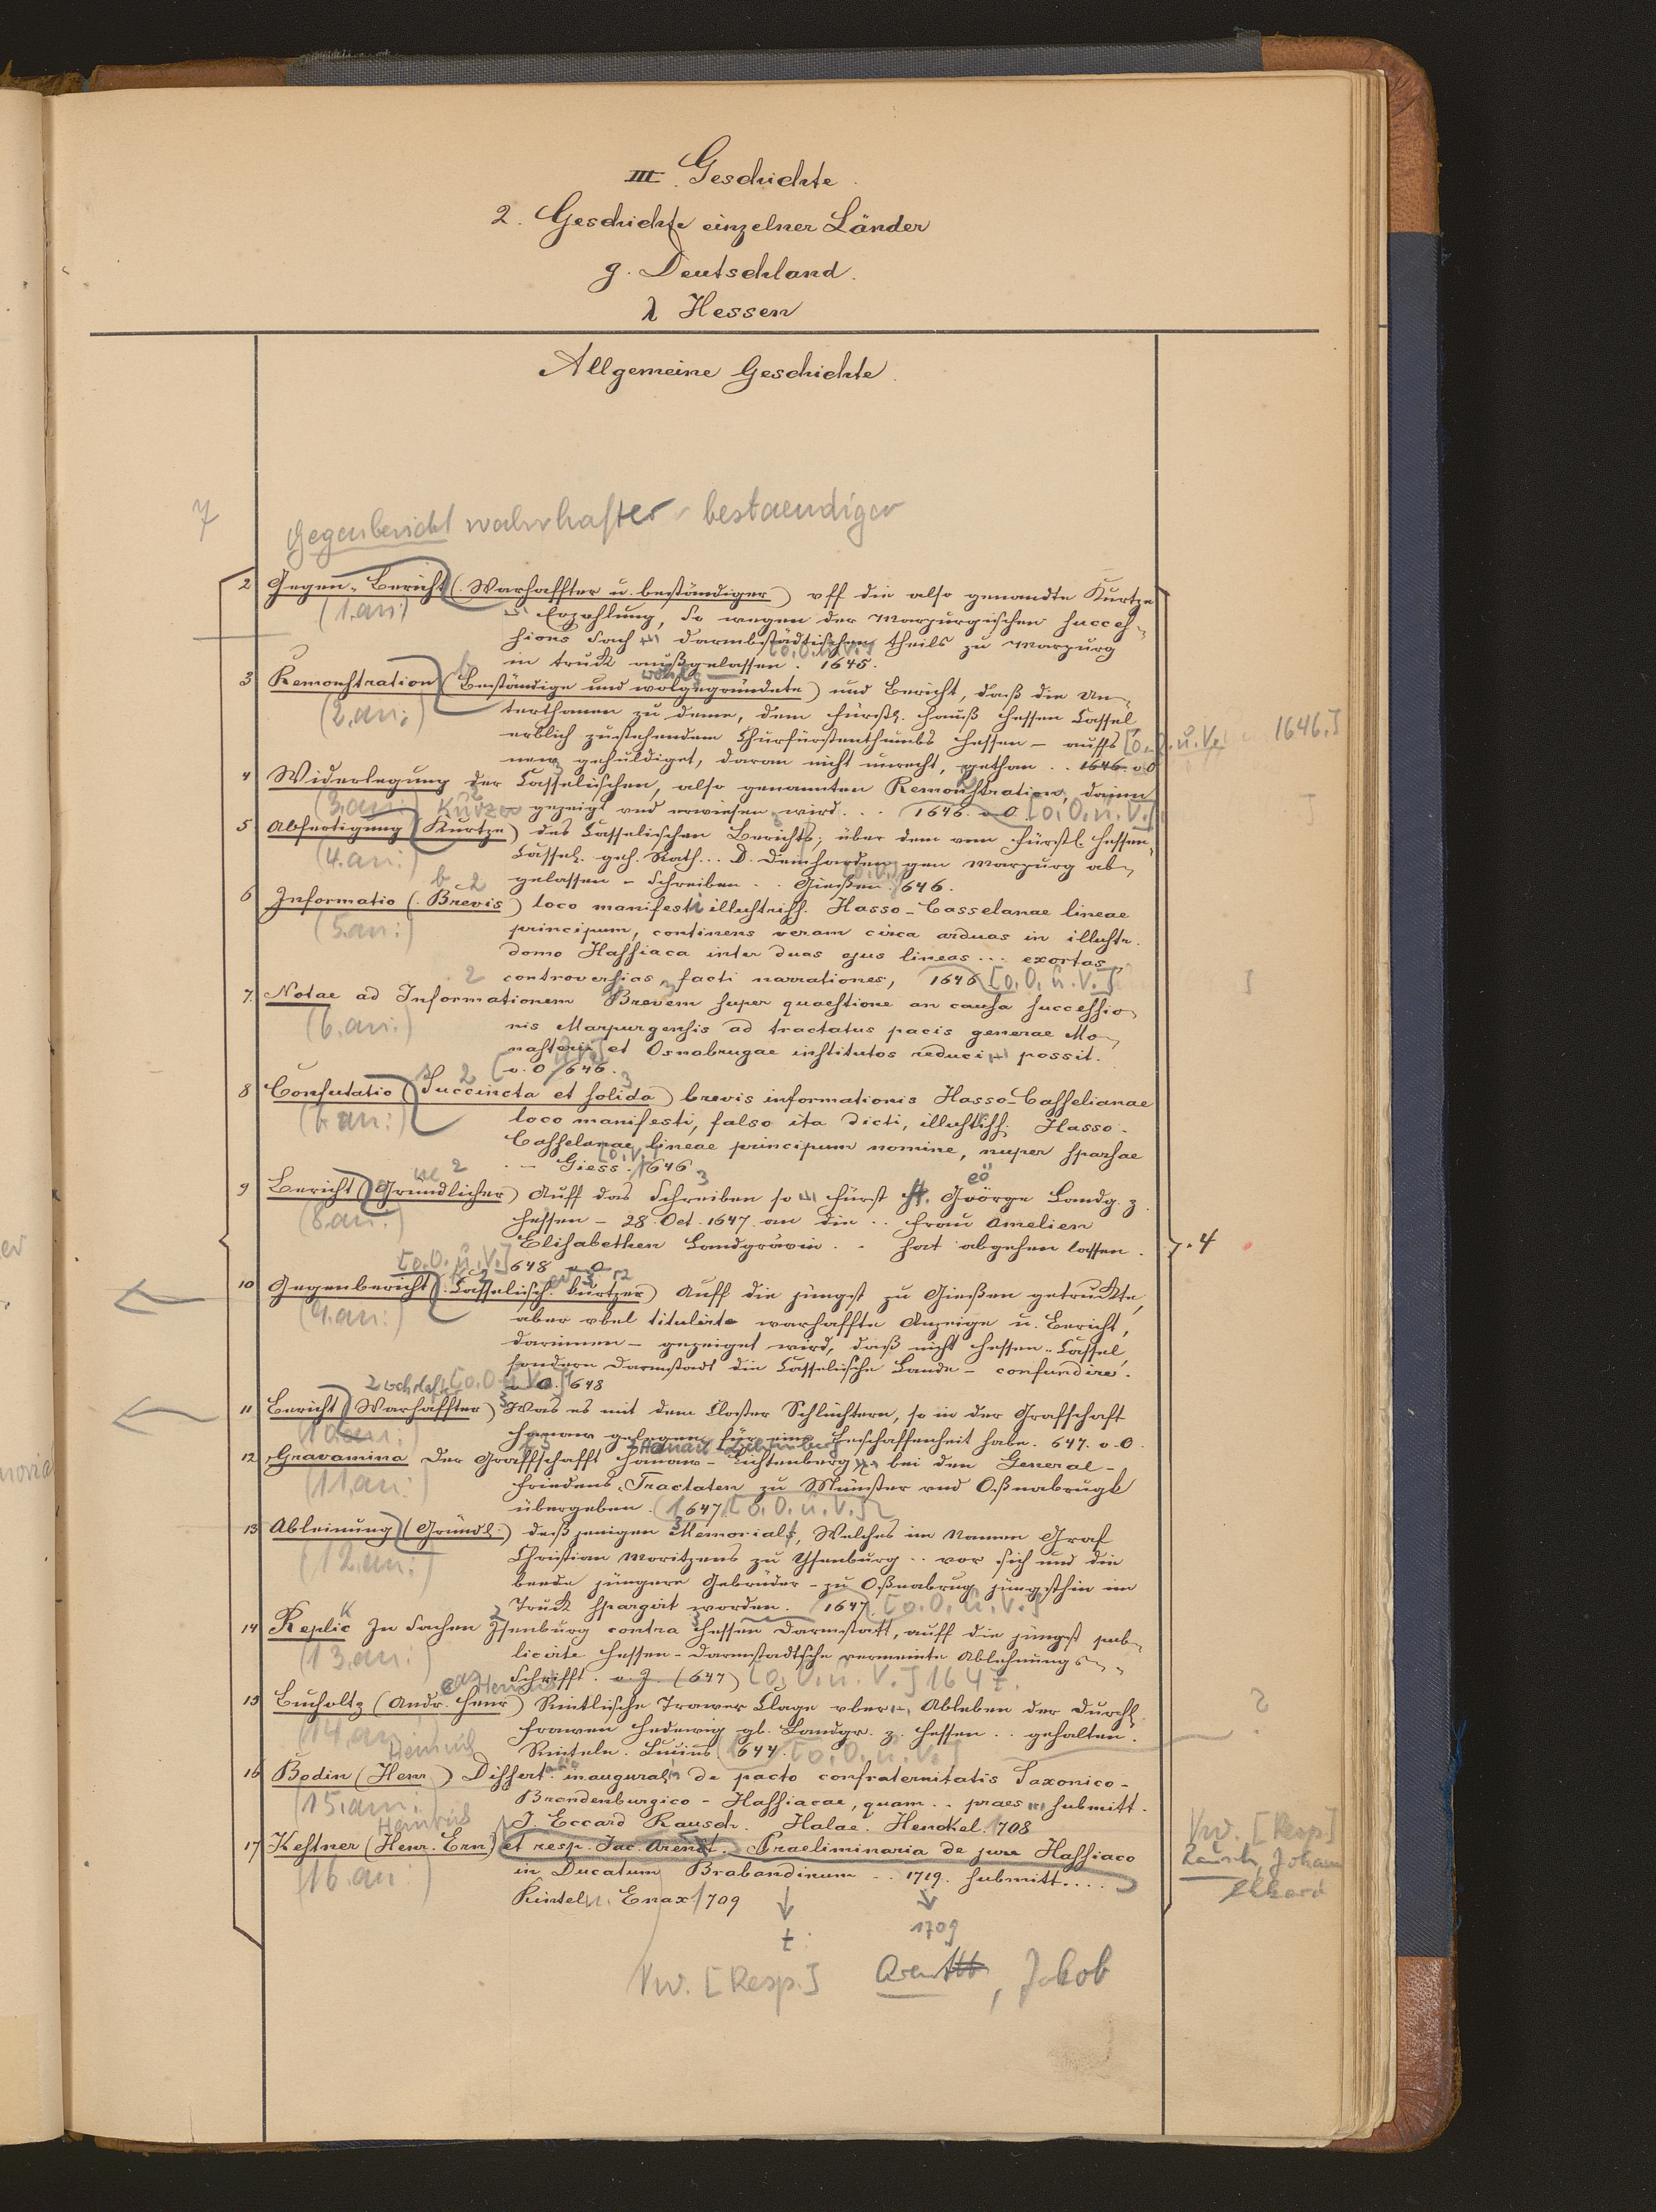 III. Geschichte.
2. Geschichte einzelner Länder
g. Deutschland.
λ Hessen
Allgemeine Geschichte.
7
Gegenbericht wahrhafter bestaendiger
2 Gegen-Bericht (Warhaffter u. beständiger) uff die also genandte Kurtze
(1.an:) Erzehlung, so wegen der Marpurgischen Succes-
sions Sach darmbstädtischen theils zu Marpurg
[o.O.u.V.]
in truck außgelassen. 1645.
3 Remonstration (Beständige und wolgegründete) und Bericht, daß die Un-
(2.an:) terthanen zu deme, dem Fürstl. Hauß Hessen Cassel
erblich zustehendem Churfürstenthumbs Hessen – auffs [o.O.u.V. 1646.]
new gehuldiget, daran nicht unrecht, gethan .. 1646. o.O
4 Widerlegung der Casselischen, also genannten Remonstration, darinn
(3.an:) Kurze gezeigt und erwiesen wird... 1646. o.O. [o.O.u.V.]
5 Abfertigung (Kurtze) des Casselischen Berichts, über dem vom Fürstl. Hessen-
(4.an:) Cassel. geh. Rath... D. Deinharden gen Marpurg ab-
gelassen – Schreiben .. Gießen 1646.
b 2
6 Informatio (Brevis) loco manifesti illustriss. Hasso-Casselanae lineae
(5.an:) principum, continens veram circa arduas in illustr.
domo Hassiaca inter duas ejus lineas ... exortas
controversias facti narrationes, 1646 [o.O.u.V.]
7. Notae ad Informationem Brevem super quaestione an causa successio-
(6.an:) nis Marpurgensis ad tractatus pacis generae Mo-
nasterii et Osnabrugae institutos reduci possit.
o.O 1646.
8 Confutatio (Succincta et solida) brevis informationis Hasso-Casselianae
loco manifesti, falso ita dicti, illustriss. Hasso-
Casselanae lineae principum nomine, nuper sparsae
– Giess. 1646
9 Bericht (Gründlicher) Auff das Schreiben so Fürst Geörge Landg. z.
(8.an:) Hessen – 28. Oct. 1647 an die .. Frau Amelien
Elisabethen Landgräwin .. hat abgehen lassen. 7.4
[o.O.u.V.] 1648 o.O
10 Gegenbericht (Casselisch. kurtzer) Auff die jüngst zu Gießen getruckte,
(9.an:) aber ubel titulirte warhaffte Anzeige u. Bericht,
darinnen – gezeiget wird, daß nicht Hessen-Cassel,
sondern Darmstadt die Casselische Lande – confundire.
[o.O.u.V.] o.O. 1648
11 Bericht (Warhaffter) Was es mit dem Closter Schlüchtern, so in der Grafschaft
(10.an:) Hanaw gelegen für eine Beschaffenheit habe. 647. o.O.
12 Gravamina Der Graffschafft Hanaw-Lichtenberg bei den General-
(11.an:) Friedens-Tractaten zu Münster und Oßnabrugk
übergeben. 1647 [o.O.u.V.]
13 Ableinung (Gründl.) deßjenigen Memorials, Welches im Namen Graf
(12.an:) Christian Moritzens zu Ysenburg .. vor sich und die
beede jüngere Gebrüder – zu Oßnabrug jüngsthin im
Truck spargirt worden. 1647. [o.O.u.V.]
14 Replic In Sachen Isenburg contra Hessen Darmstatt, auff die jüngst pub-
(13.an:) licirte Hessen-Darmstadtsche vermeinte Ablehnungs-
Schrifft. o.J. (647) [o.O.u.V.] 1647.
15 Bucholtz (Andr. Henr) Rintlische Trawer Clage uber Ableben der Durchl.
(14.an:) Frawen Hedewig gb. Landgr. z. Hessen .. gehalten. ?
Heinrich Rinteln. Lucius 1644. [o.O.u.V.]
16 Bodin (Henr) Dissert. inaugural. de pacto confraternitatis Saxonico-
(15.an:) Brandenburgico-Hassiacae, quam .. praes submitt.
Heinrich J. Eccard Rausch. Halae. Henckel. 1708
Vw. [Resp]
17 Kestner (Henr. Ern.) et resp. Jac. Arendt. Praeliminaria de jure Hassiaco
Rausch, Johann
(16.an:) in Ducatum Brabandinum .. 1719. submitt....
Ekkard
Rinteln. Enax 1709
t 1709
Vw. [Resp.] Arendt, Jakob